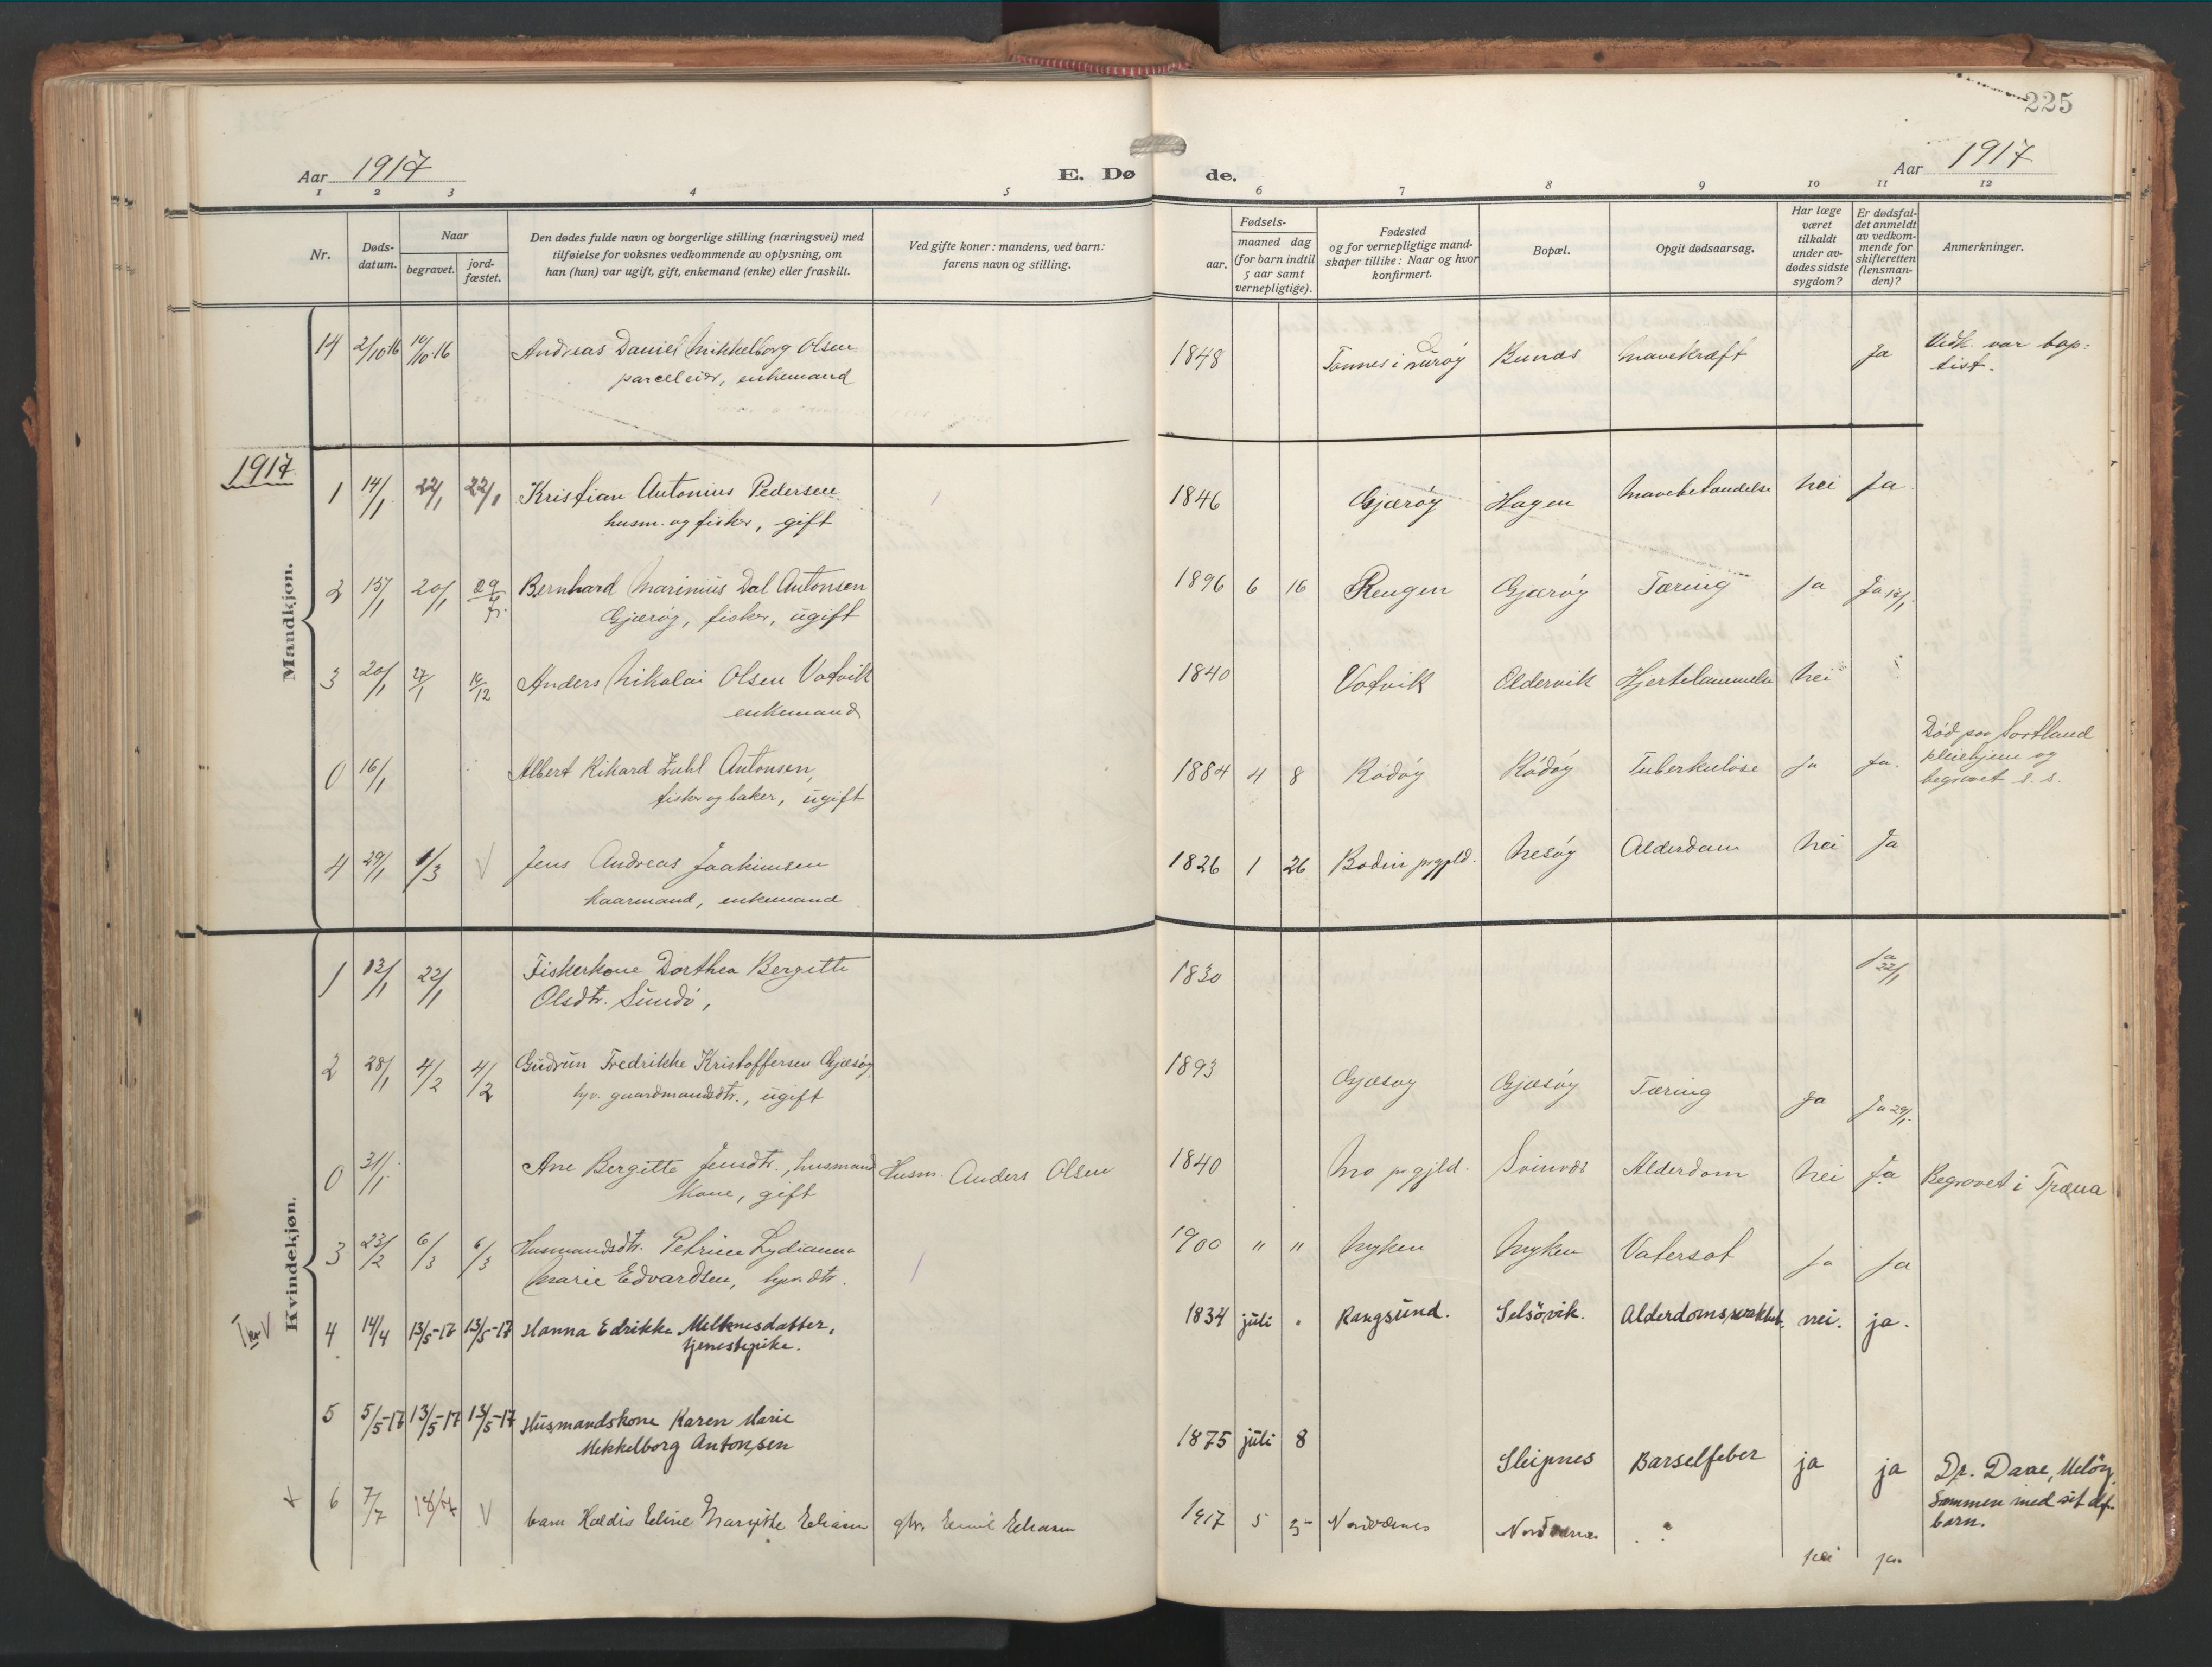 225
Aar 1917
E. Døde.
Aar 1917
1 2 3 4 5 6 7 8 9 10 11 12
Nr.
Døds-
datum.
Naar
begravet.
jord-
fæstet.
Den dødes fulde navn og borgerlige stilling (næringsvei) med
tilføielse for voksnes vedkommende av oplysning, om
han (hun) var ugift, gift, enkemand (enke) eller fraskilt.
Ved gifte koner: mandens, ved barn:
farens navn og stilling.
Fødsels-
aar.
maaned dag
(for barn indtil
5 aar samt
vernepligtige).
Fødested
og for vernepligtige mand-
skaper tillike: Naar og hvor
konfirmert.
Bopæl.
Opgit dødsaarsag.
Har læge
været
tilkaldt
under av-
dødes sidste
sygdom?
Er dødsfal-
det anmeldt
av vedkom-
mende for
skifteretten
(lensman-
den)?
Anmerkninger.
Mandkjøn.
14 2/10-16 10/10-16 Andreas Daniel Mikkelborg Olsen 1848 Tonnes i Lurøy Bunæs Mavekræft Ja Vedk. var bap-
parceleier, enkemand tist.
1917
1 14/1 22/1 22/1 Kristian Antonius Pedersen 1846 Gjærøy Hagen nei Ja
husm. og fisker, gift
2 15/1 20/1 29/7 Bernhard Marinius Dal Antonsen 1896 6 16 Rengen Gjærøy Tæring ja Ja
Gjærøy, fisker, ugift
3 20/1 27/1 Anders Nikolai Olsen Vatvik 1840 Vatvik Oldervik Hjertelammelse Nei
enkemand
0 16/1 Albert Rikard Zahl Antonsen, 1884 4 8 Rødøy Rødøy Tuberkuløse ja ja. Død paa Sortland
fisker og baker, ugift pleiehjem og
begravet s. s.
4 29/1 1/3 V Jens Andreas Joakimsen 1826 1 26 Bodin prgjld. Nesøy Alderdom Nei Ja
kaarmand, enkemand
Kvindekjøn.
1 13/1 22/1 Fiskerkone Dorthea Bergitte 1830 ja 22/1
Olsdtr. Sundø,
2 28/1 4/2 4/2 Gudrun Fredrikke Kristoffersen Gjæsøy 1893 Gjæsøy Gjæsøy Tæring ja Ja 29/1
hjv. gaardmandsdtr., ugift
0 31/1 Ane Bergitte Jensdtr., husmand Husm. Anders Olsen 1840 Mo prgjld. Svinvær Alderdom Nei Ja Begravet i Træna
kone, gift
3 23/2 6/3 6/3 Husmandsdtr. Petrine Lydianna 1900 " " Myken Myken Vatersot Ja Ja
Marie Edvardsen, hjemdtr.
4 14/4 13/5-17 13/5-17 Hanna Edrikke Melknesdatter, 1834 juli " Rangsund. Selsøvik. Alderdomssvakhet. nei. ja.
tjenestepike.
5 5/5-17 13/5-17 13/5-17 Husmandskone Karen Marie 1875 juli 8 Sleipnes Barselfeber ja ja Dr. Daae, Meløy.
Mekkelborg Antonsen Sammen med sit df.
barn.
x 6 7/7 18/7 V barn Haldis Eline Margitte Eliasen gbr. Emil Eliasen 1917 5 5 Nordværnes Nordværnes nei ja